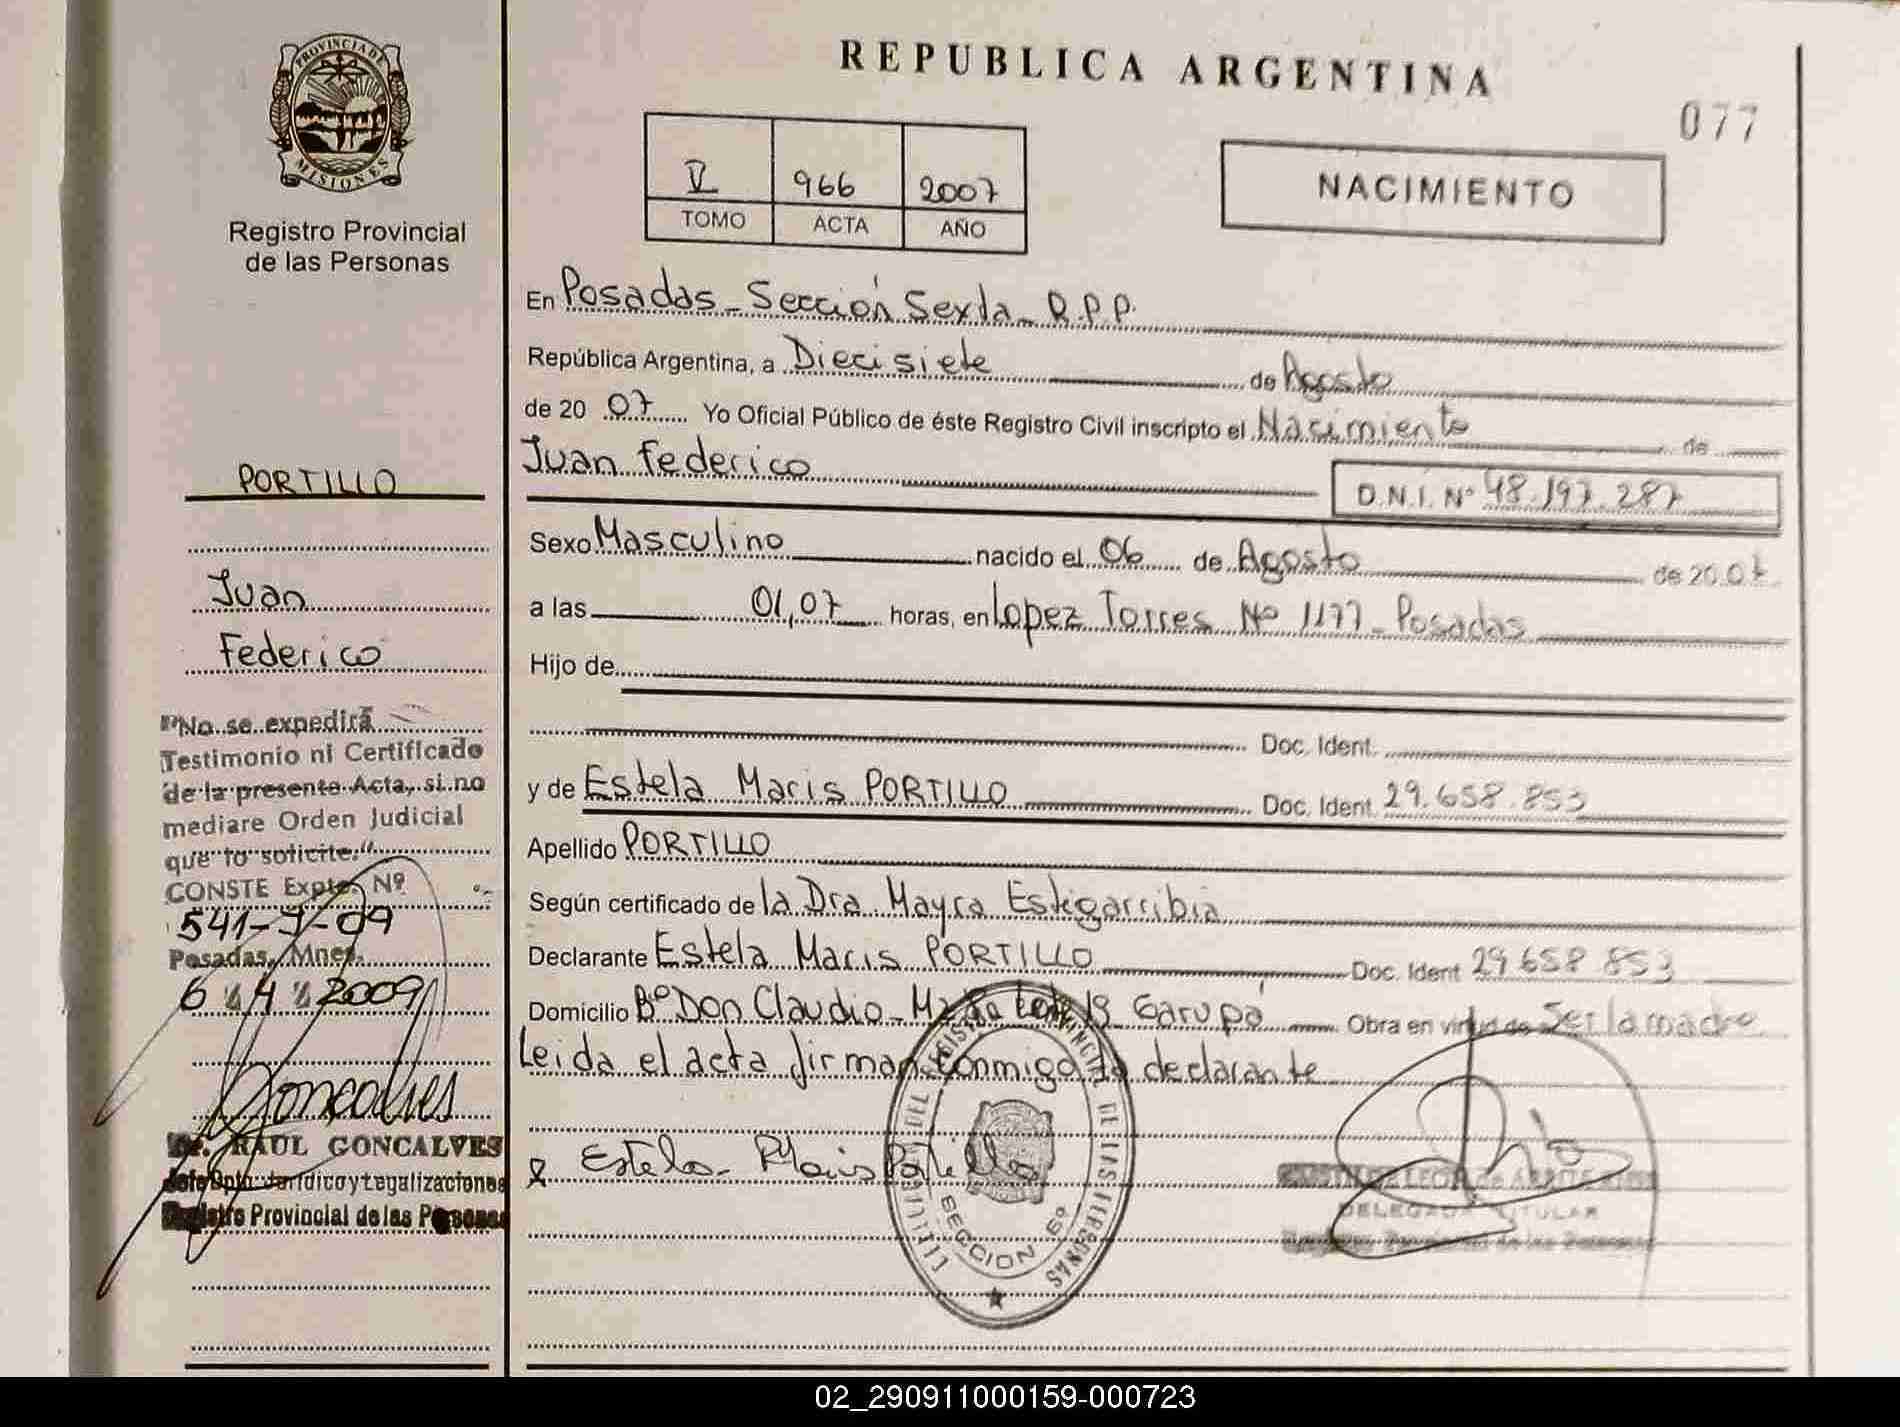 PROVINCIA DE
MISIONES
Registro Provincial
de las Personas
PORTILLO
Juan
Federico
"No se expedirá
Testimonio ni Certificado
de la presente Acta, si no
mediare Orden Judicial
que lo solicite."
CONSTE Expte. Nº
541-J-09
Posadas, Mnes.
6 4 2009
Goncalves
Dr. RAUL GONCALVES
Jefe Dpto. Jurídico y Legalizaciones
Registro Provincial de las Personas
REPUBLICA ARGENTINA
077
V 966 2007
TOMO ACTA AÑO
NACIMIENTO
En Posadas - Sección Sexta - R.P.P.
República Argentina, a Diecisiete de Agosto
de 20 07 Yo Oficial Público de éste Registro Civil inscripto el Nacimiento de
Juan Federico D.N.I. Nº 48.197.287
Sexo Masculino nacido el 06 de Agosto de 20 07
a las 01,07 horas, en Lopez Torres Nº 1177 - Posadas
Hijo de
Doc. Ident.
y de Estela Maris PORTILLO Doc. Ident. 29.658.853
Apellido PORTILLO
Según certificado de la Dra Mayra Estigarribia
Declarante Estela Maris PORTILLO Doc. Ident 29.658.853
Domicilio Bº Don Claudio - 19 Garupá Obra en virtud de Ser la madre
Leida el acta firman conmigo la declarante
Estela Maris Portillo
DEL REGISTRO PROVINCIAL DE LAS PERSONAS
SECCION 6º
DELEGADA TITULAR
Registro Provincial de las Personas
02_290911000159-000723